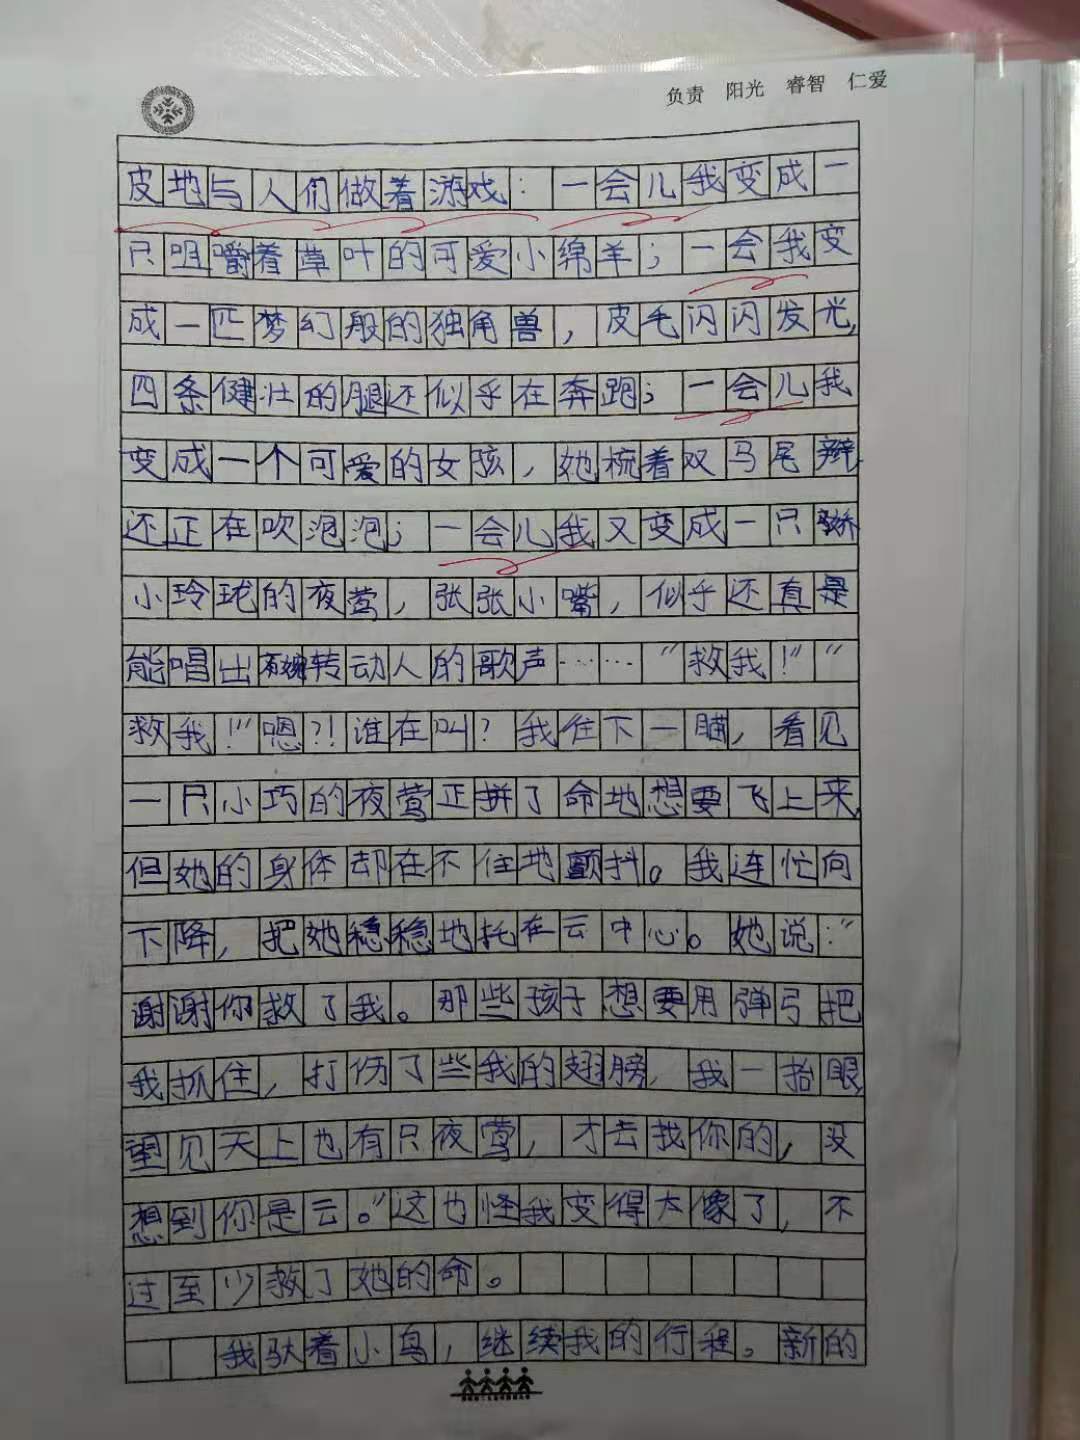 负责 阳光 睿智 仁爱
皮地与人们做着游戏：一会儿我变成一
只咀嚼着草叶的可爱小绵羊；一会我变
成一匹梦幻般的独角兽，皮毛闪闪发光，
四条健壮的腿还似乎在奔跑；一会儿我
变成一个可爱的女孩，她梳着双马尾辫
还正在吹泡泡；一会儿我又变成一只娇
小玲珑的夜莺，张张小嘴，似乎还真是
能唱出婉转动人的歌声……“救我！”“
救我！”嗯？！谁在叫？我住下一瞄，看见
一只小巧的夜莺正拼了命地想要飞上来，
但她的身体却在不住地颤抖。我连忙向
下降，把她稳稳地托在云中心。她说：“
谢谢你救了我。那些孩子想要用弹弓把
我抓住，打伤了些我的翅膀，我一抬眼
望见天上也有只夜莺，才去找你的，没
想到你是云。”这也怪我变得太像了，不
过至少救了她的命。
我驮着小鸟，继续我的行程。新的